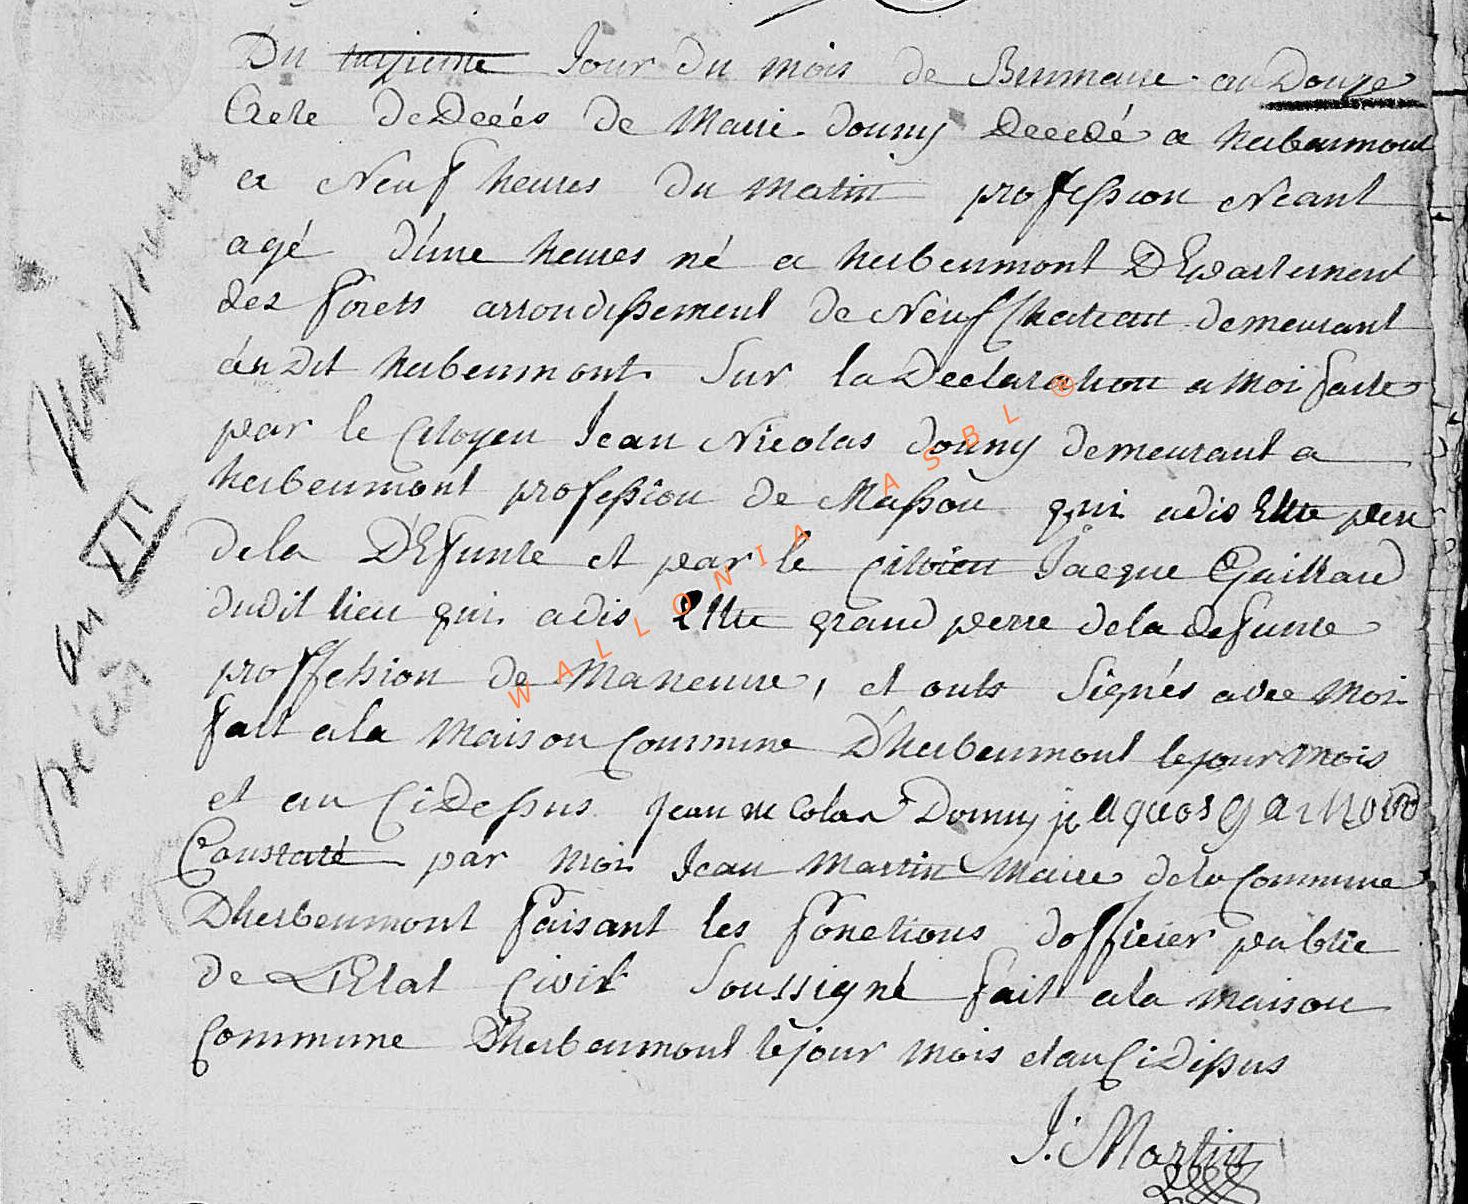 Du treisieme Jour du mois de Brumaire an Douze
Acte de Decés de Marie donny Decedé a herbeumont
a Neuf heures du matin profession Neant
agé d'une heures né a herbeumont DEpartement
des forets arrondissement de Neufchateau demeurant
audit herbeumont Sur la Declaration a moi faite
par le Citoyen Jean Nicolas donny demeurant a
herbeumont profession de Masson qui a dis Etre pere
de la DEfunte et par le Citoien Jacque Gaillard
dudit lieu qui a dis Ettre grand perre de la defunte
proffession de Maneuvre, et onts Signés avec moi
fait a la maison commune D'herbeumont le jour mois
et an Ci Dessus Jean nicolas Donny
Constaté par moi Jean Martin Maire de la Commune
Dherbeumont faisant les fonctions dofficier publie
de LEtat Civil Soussigné fait a la maison
commune Dherbeumont le jour mois et an Ci Dessus
J. Martin
an II
WALLONIA ASBL ®